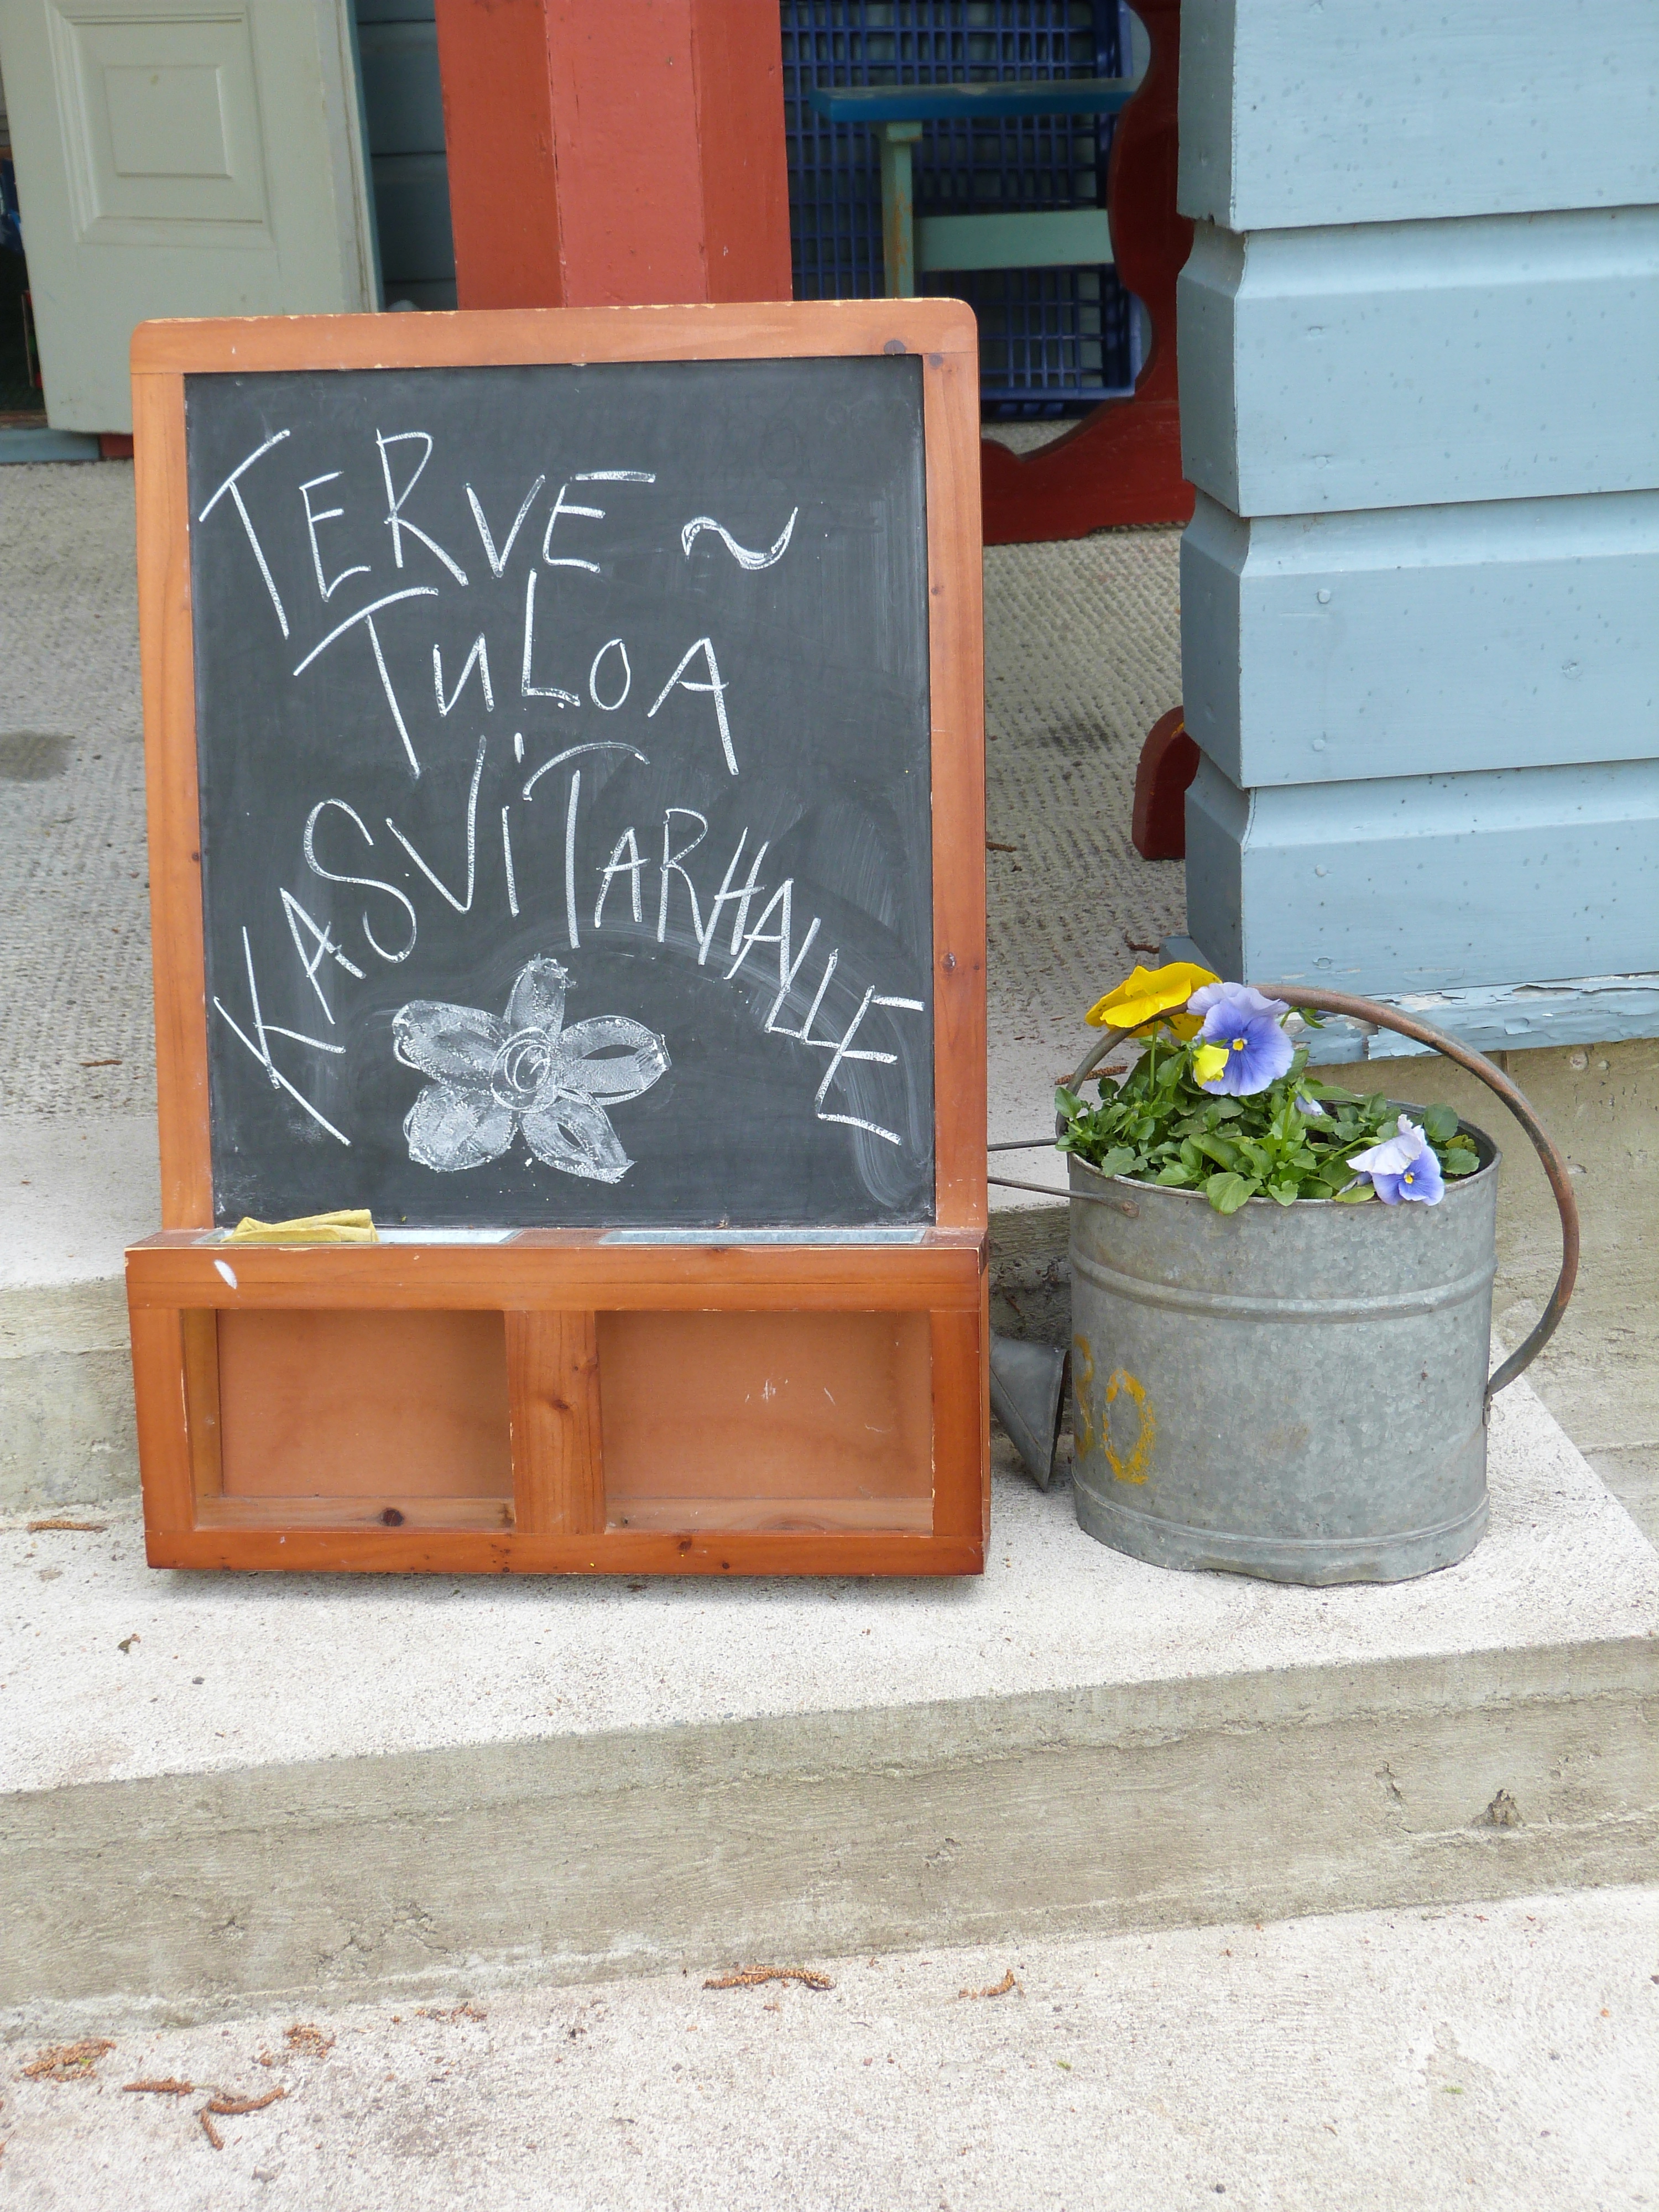 TERVE ~
TULOA
KASVITARHALLE
30